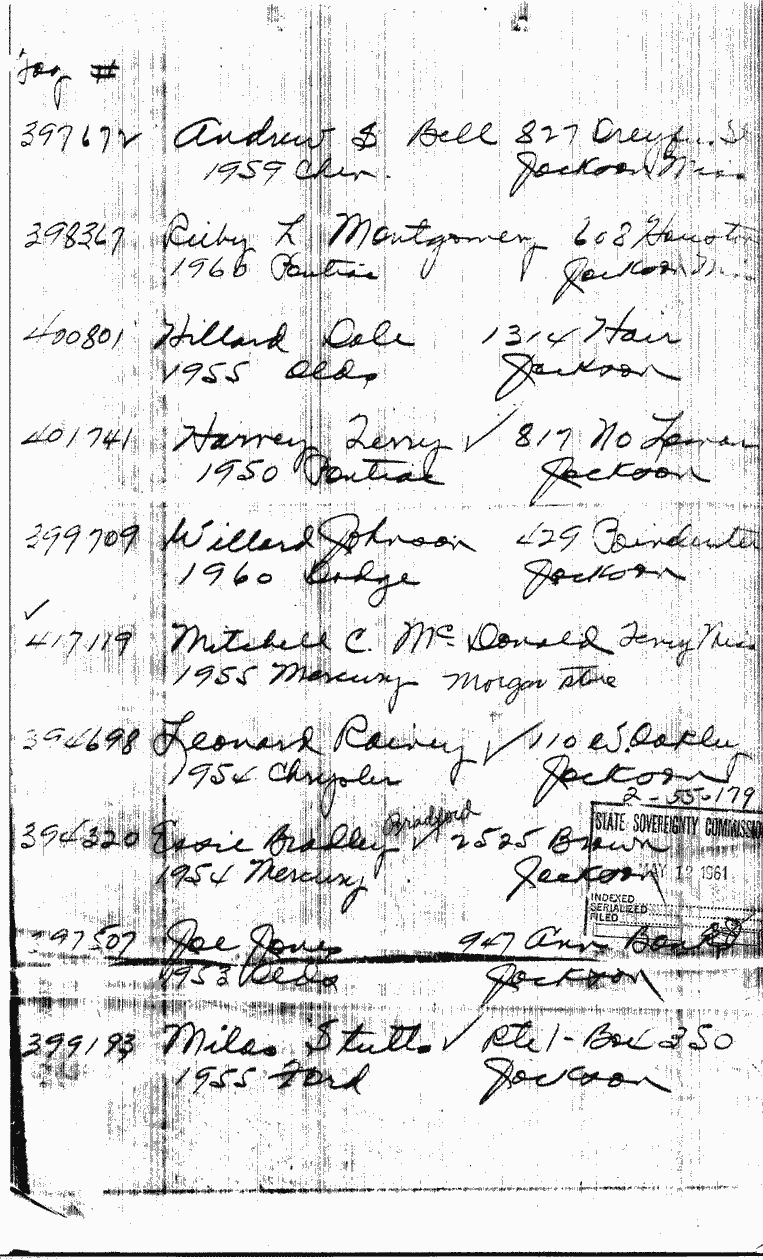 Tag #
397672 Andrew S Bell 827 Dreyfus St
1959 Chev. Jackson Miss
398367 Ruby L Montgomery 608 Houston
1960 Pontiac Jackson Miss
400801 Hillard Dole 1314 Hair
1955 Olds Jackson
401741 Harvey Terry ✓ 817 No Lamar
1950 Pontiac Jackson
399709 Willard Johnson 429 Poindexter
1960 Dodge Jackson
✓
417119 Mitchell C. McDonald Terry Miss
1955 Mercury Morgan Store
394698 Leonard Rainey ✓ 110 W. Oakley
1954 Chrysler Jackson
2-55-179
Bradford
394320 Essie Bradley ✓ 2525 Brown
1954 Mercury Jackson
STATE SOVEREIGNTY COMMISSION
MAY 12 1961
INDEXED
SERIALIZED
FILED
397507 Joe Jones 947 Ann
1953 Olds Jackson
399193 Milas Stutts ✓ Rte 1-Box 350
1955 Ford Jackson